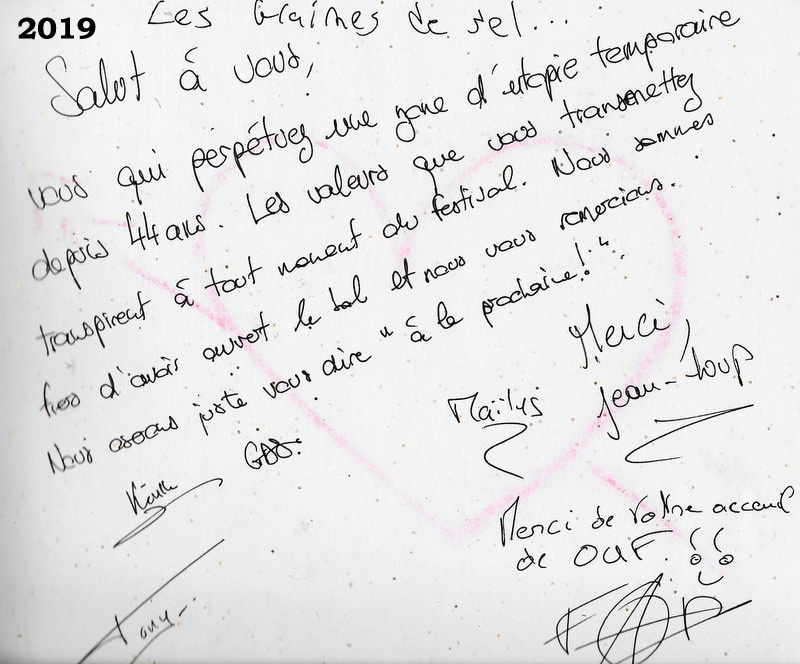 2019
Les Graines de sel...
Salut à vous,
vous qui perpétuez une zone d'utopie temporaire
depuis 44 ans. Les valeurs que vous transmettez
transpirent à tout moment du festival. Nous sommes
fiers d'avoir ouvert le bal et nous vous remercions.
Nous osons juste vous dire "à la prochaine!"
Merci,
Maïlys jean-loup
Merci de votre accueil
de OUF !!
Tony